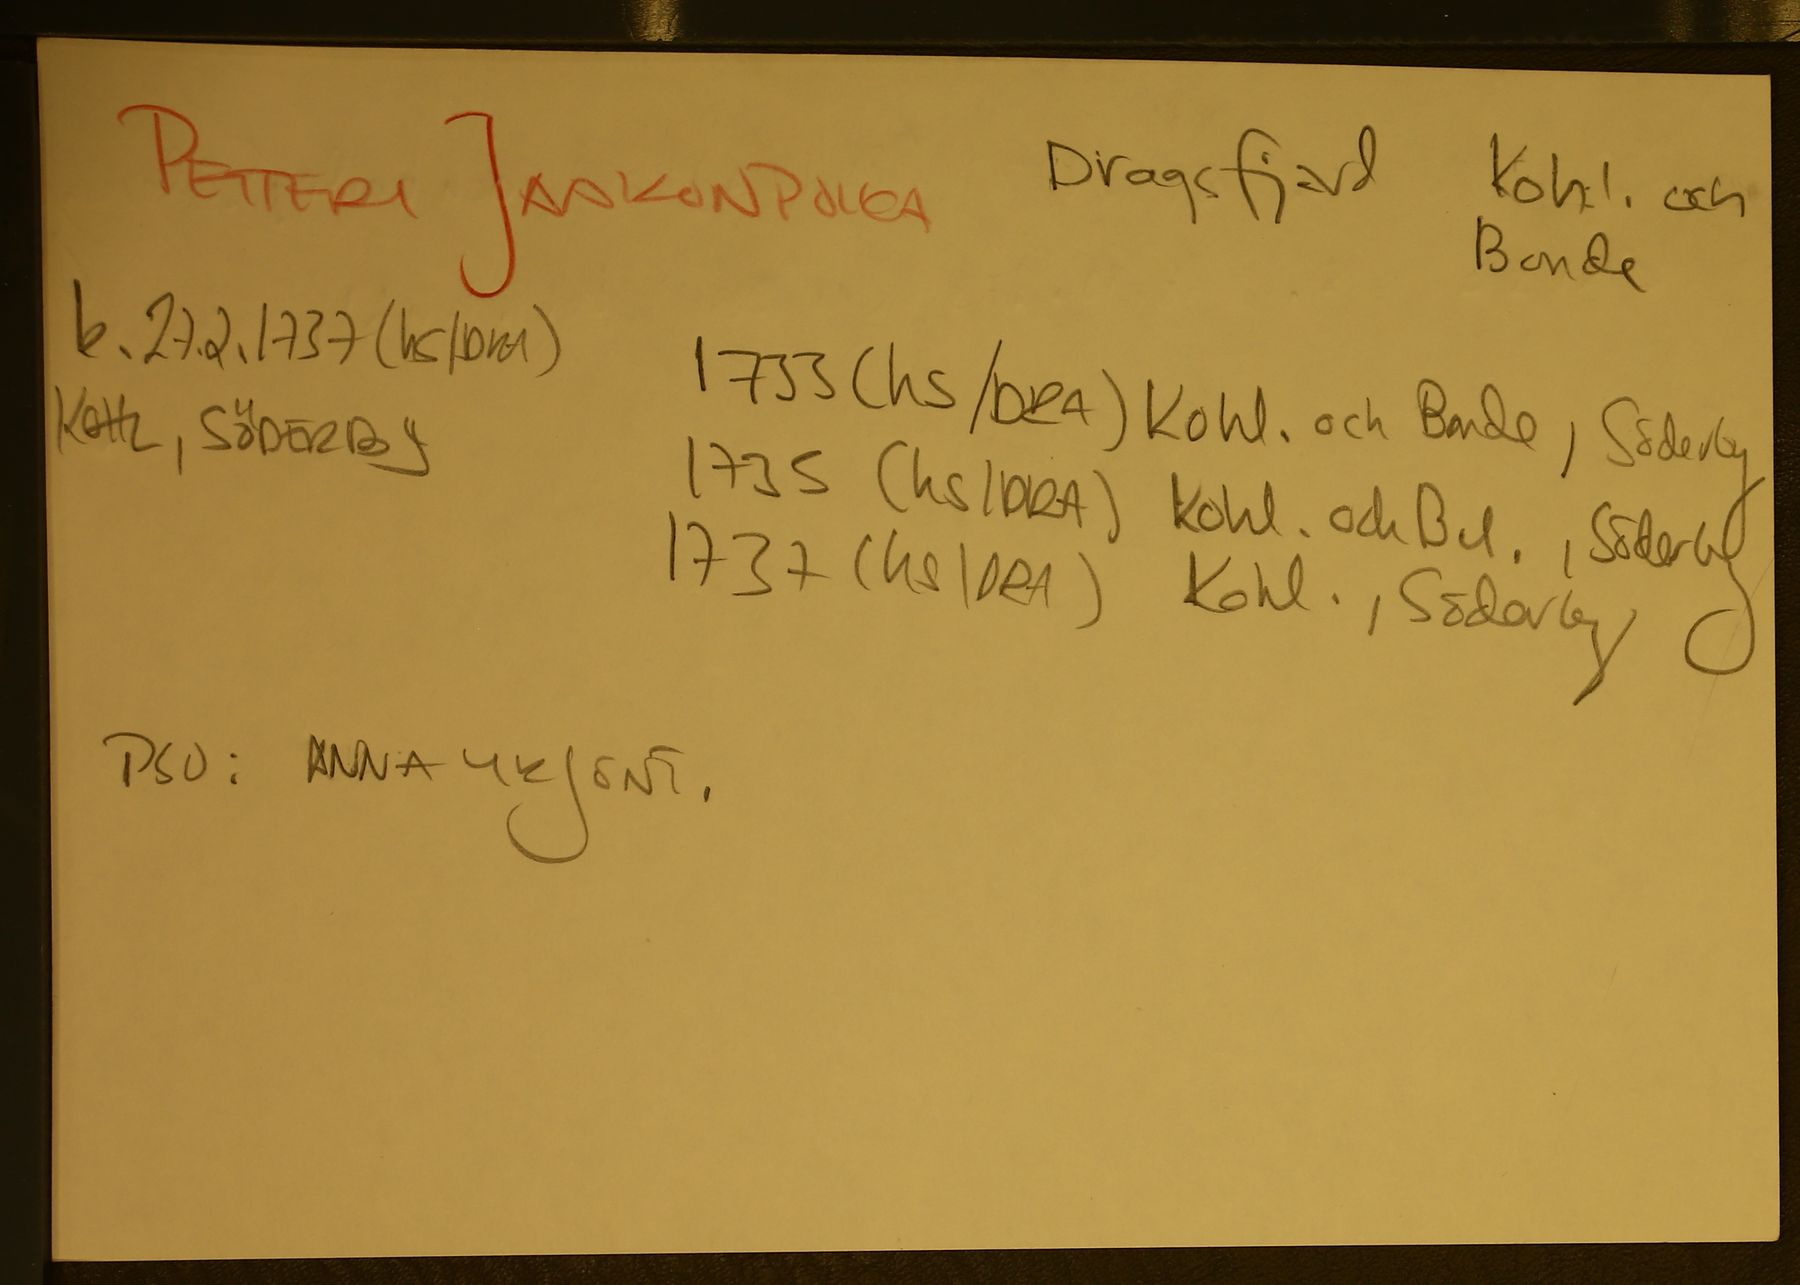 PETTERI JAAKONPOIKA Dragsfjärd Kohl. och
Bonde
k. 27.2.1737 (hs/DRA)
KOHL, SÖDERBY
1733 (hs/DRA) Kohl. och Bonde, Söderby
1735 (hs/DRA) Kohl. och Bd., Söderby
1737 (hs/DRA) Kohl., Söderby
PSO: ANNA YRJÖNT.